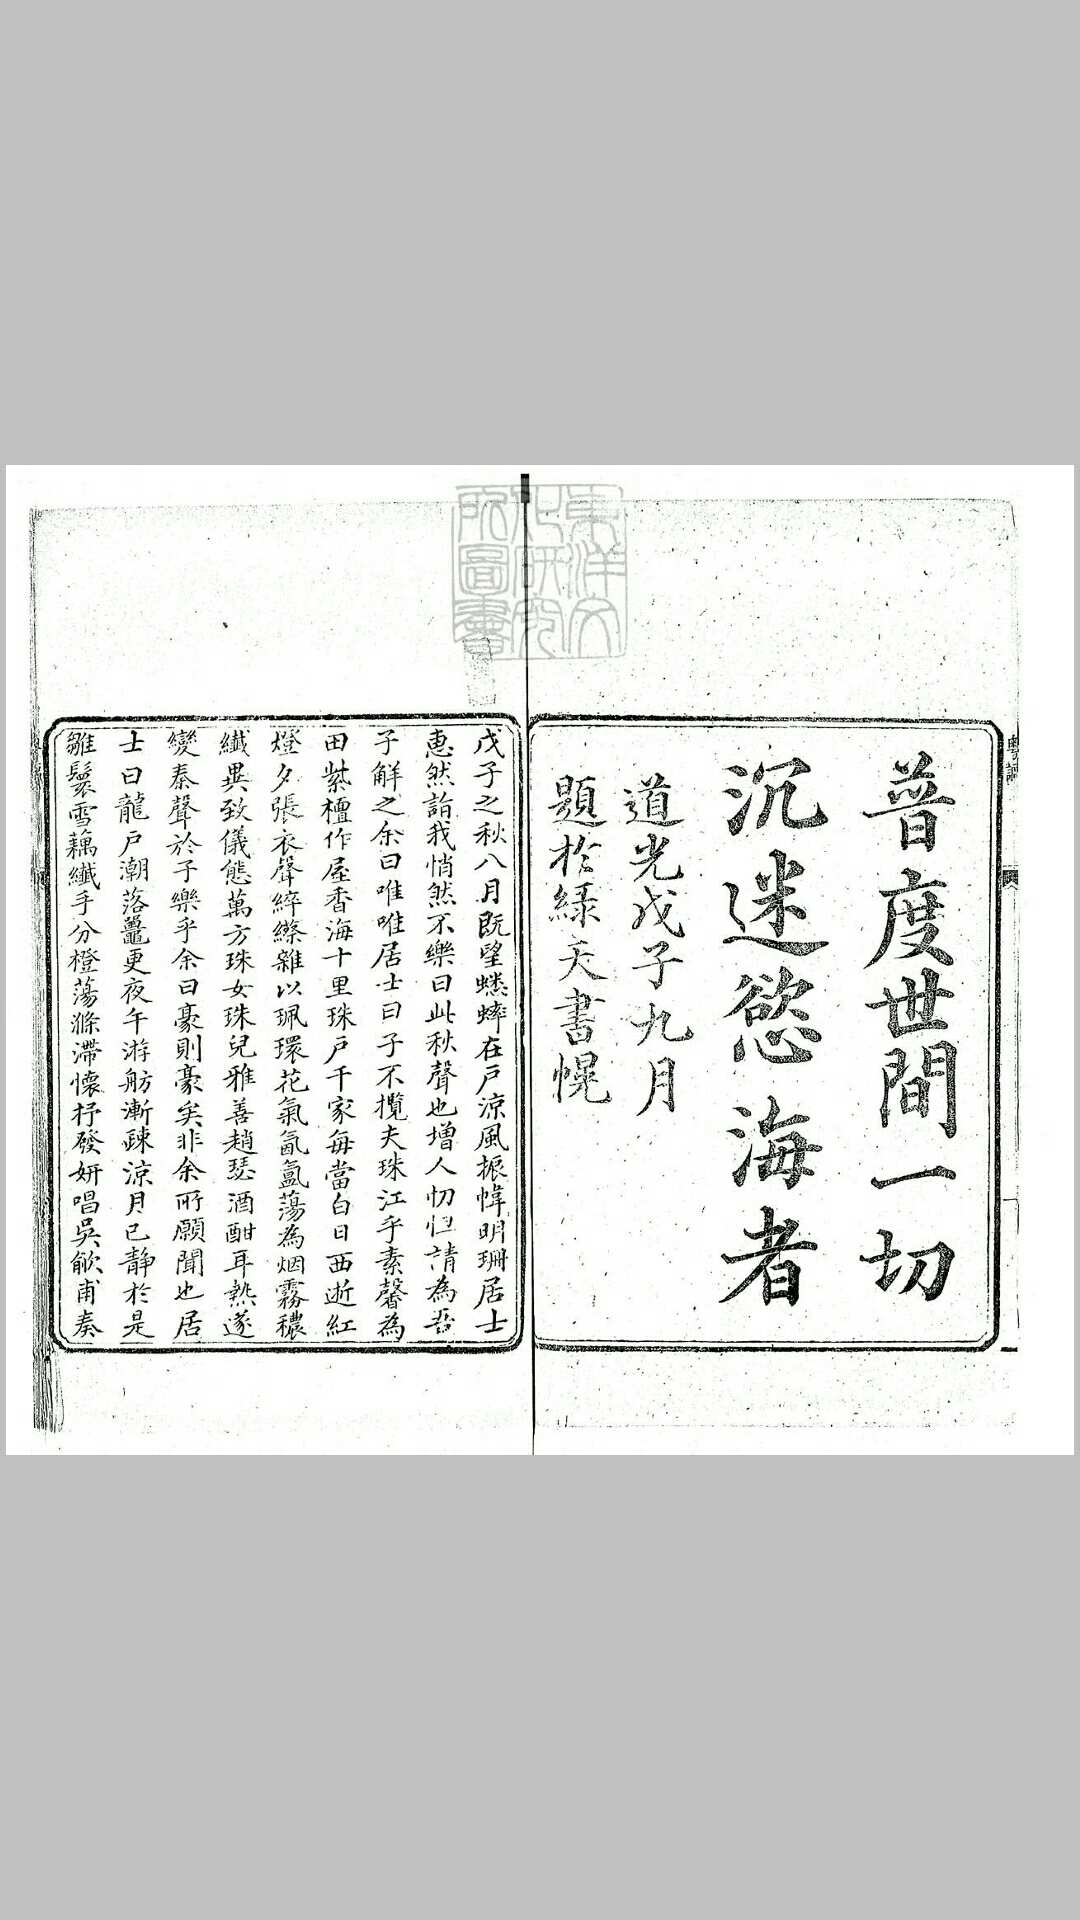 普度世間一切
沉迷慾海者
道光戊子九月
題於綠天書幌
戊子之秋八月既望蟋蟀在戶涼風振幃明珊居士
惠然詣我悄然不樂曰此秋聲也增人忉怛請為吾
子解之余曰唯唯居士曰子不攬夫珠江乎素馨為
田紫檀作屋香海十里珠戶千家每當白日西逝紅
燈夕張衣聲綷縩雜以珮環花氣氤氳蕩為烟霧穠
纖異致儀態萬方珠女珠兒雅善趙瑟酒酣耳熱遂
變秦聲於子樂乎余曰豪則豪矣非余所願聞也居
士曰龍戶潮落鼉更夜午游舫漸疎涼月已靜於是
雛鬟雪藕纖手分橙蕩滌滯懷抒發妍唱吳歈甫奏
東洋文
化研究
所圖書